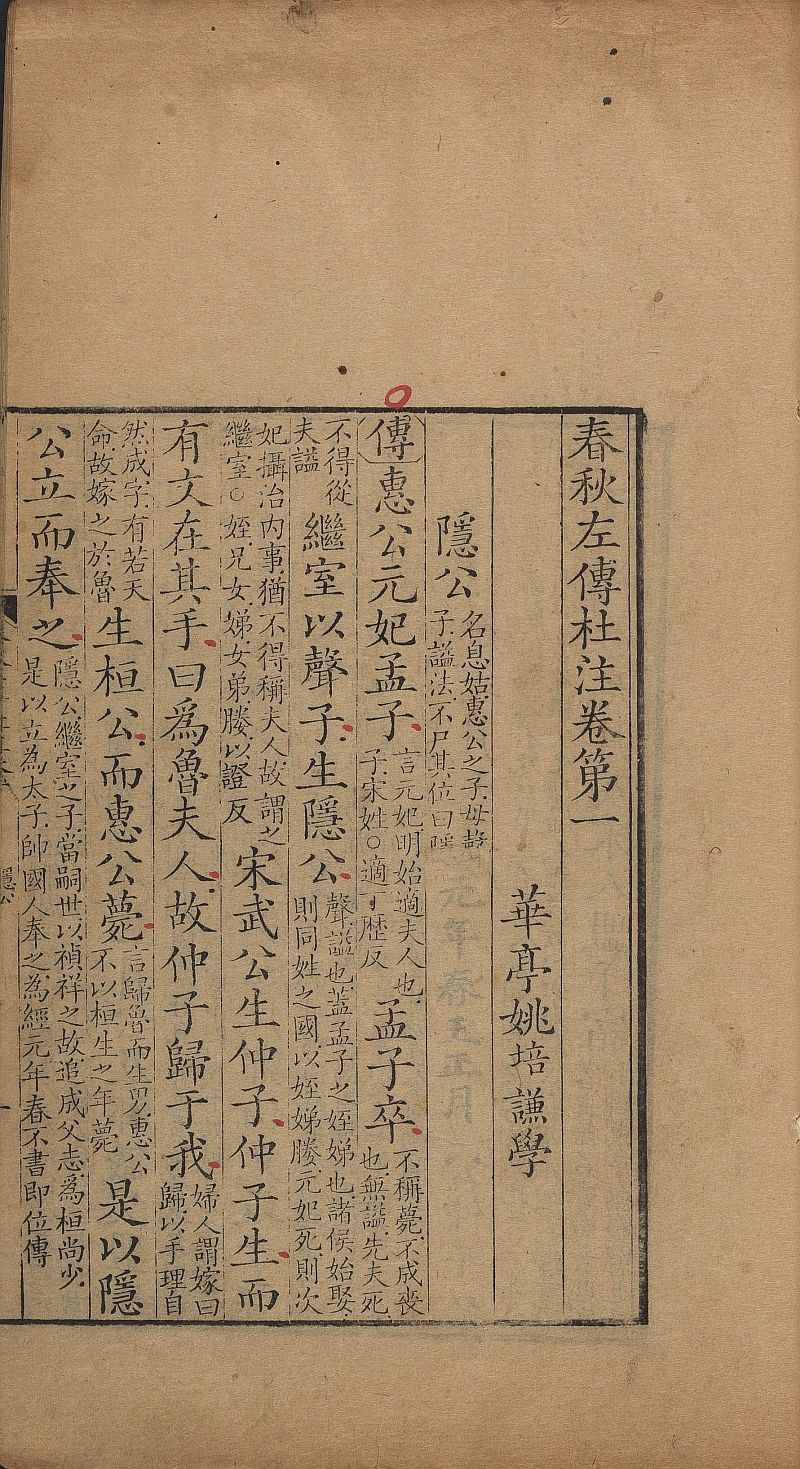 春秋左傳杜注卷第一
華亭姚培謙學
隱公名息姑惠公之子母聲子謚法不尸其位曰隱
傳惠公元妃孟子言元妃明始適夫人也子宋姓○適丁歷反孟子卒不稱薨不成喪也無謚先夫死
不得從夫謚繼室以聲子生隱公聲謚也蓋孟子之姪娣也諸侯始娶則同姓之國以姪娣媵元妃死則次
妃攝治內事猶不得稱夫人故謂之繼室○姪兄女娣女弟媵以證反宋武公生仲子仲子生而
有文在其手曰為魯夫人故仲子歸于我婦人謂嫁曰歸以手理自
然成字有若天命故嫁之於魯生桓公而惠公薨言歸魯而生男惠公不以桓生之年薨是以隱
公立而奉之隱公繼室之子當嗣世以禎祥之故追成父志為桓尚少是以立為太子帥國人奉之為經元年春不書即位傳
隱公
一